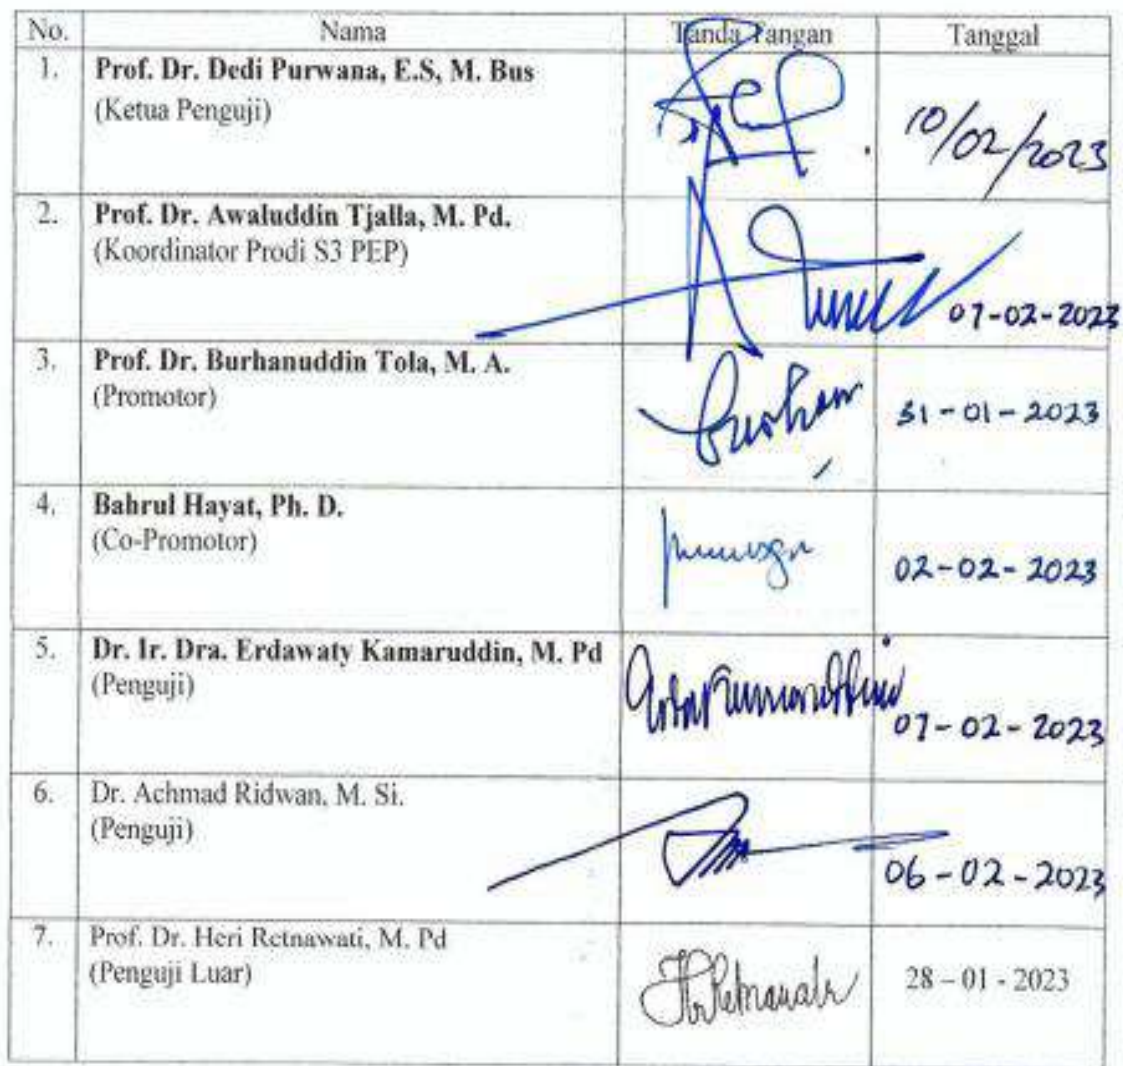 No. Nama Tanda Tangan Tanggal
1. Prof. Dr. Dedi Purwana, E.S, M. Bus
(Ketua Penguji)
10/02/2023
2. Prof. Dr. Awaluddin Tjalla, M. Pd.
(Koordinator Prodi S3 PEP)
07-02-2023
3. Prof. Dr. Burhanuddin Tola, M. A.
(Promotor)
31-01-2023
4. Bahrul Hayat, Ph. D.
(Co-Promotor)
02-02-2023
5. Dr. Ir. Dra. Erdawaty Kamaruddin, M. Pd
(Penguji)
07-02-2023
6. Dr. Achmad Ridwan, M. Si.
(Penguji)
06-02-2023
7. Prof. Dr. Heri Retnawati, M. Pd
(Penguji Luar)
28 – 01 - 2023